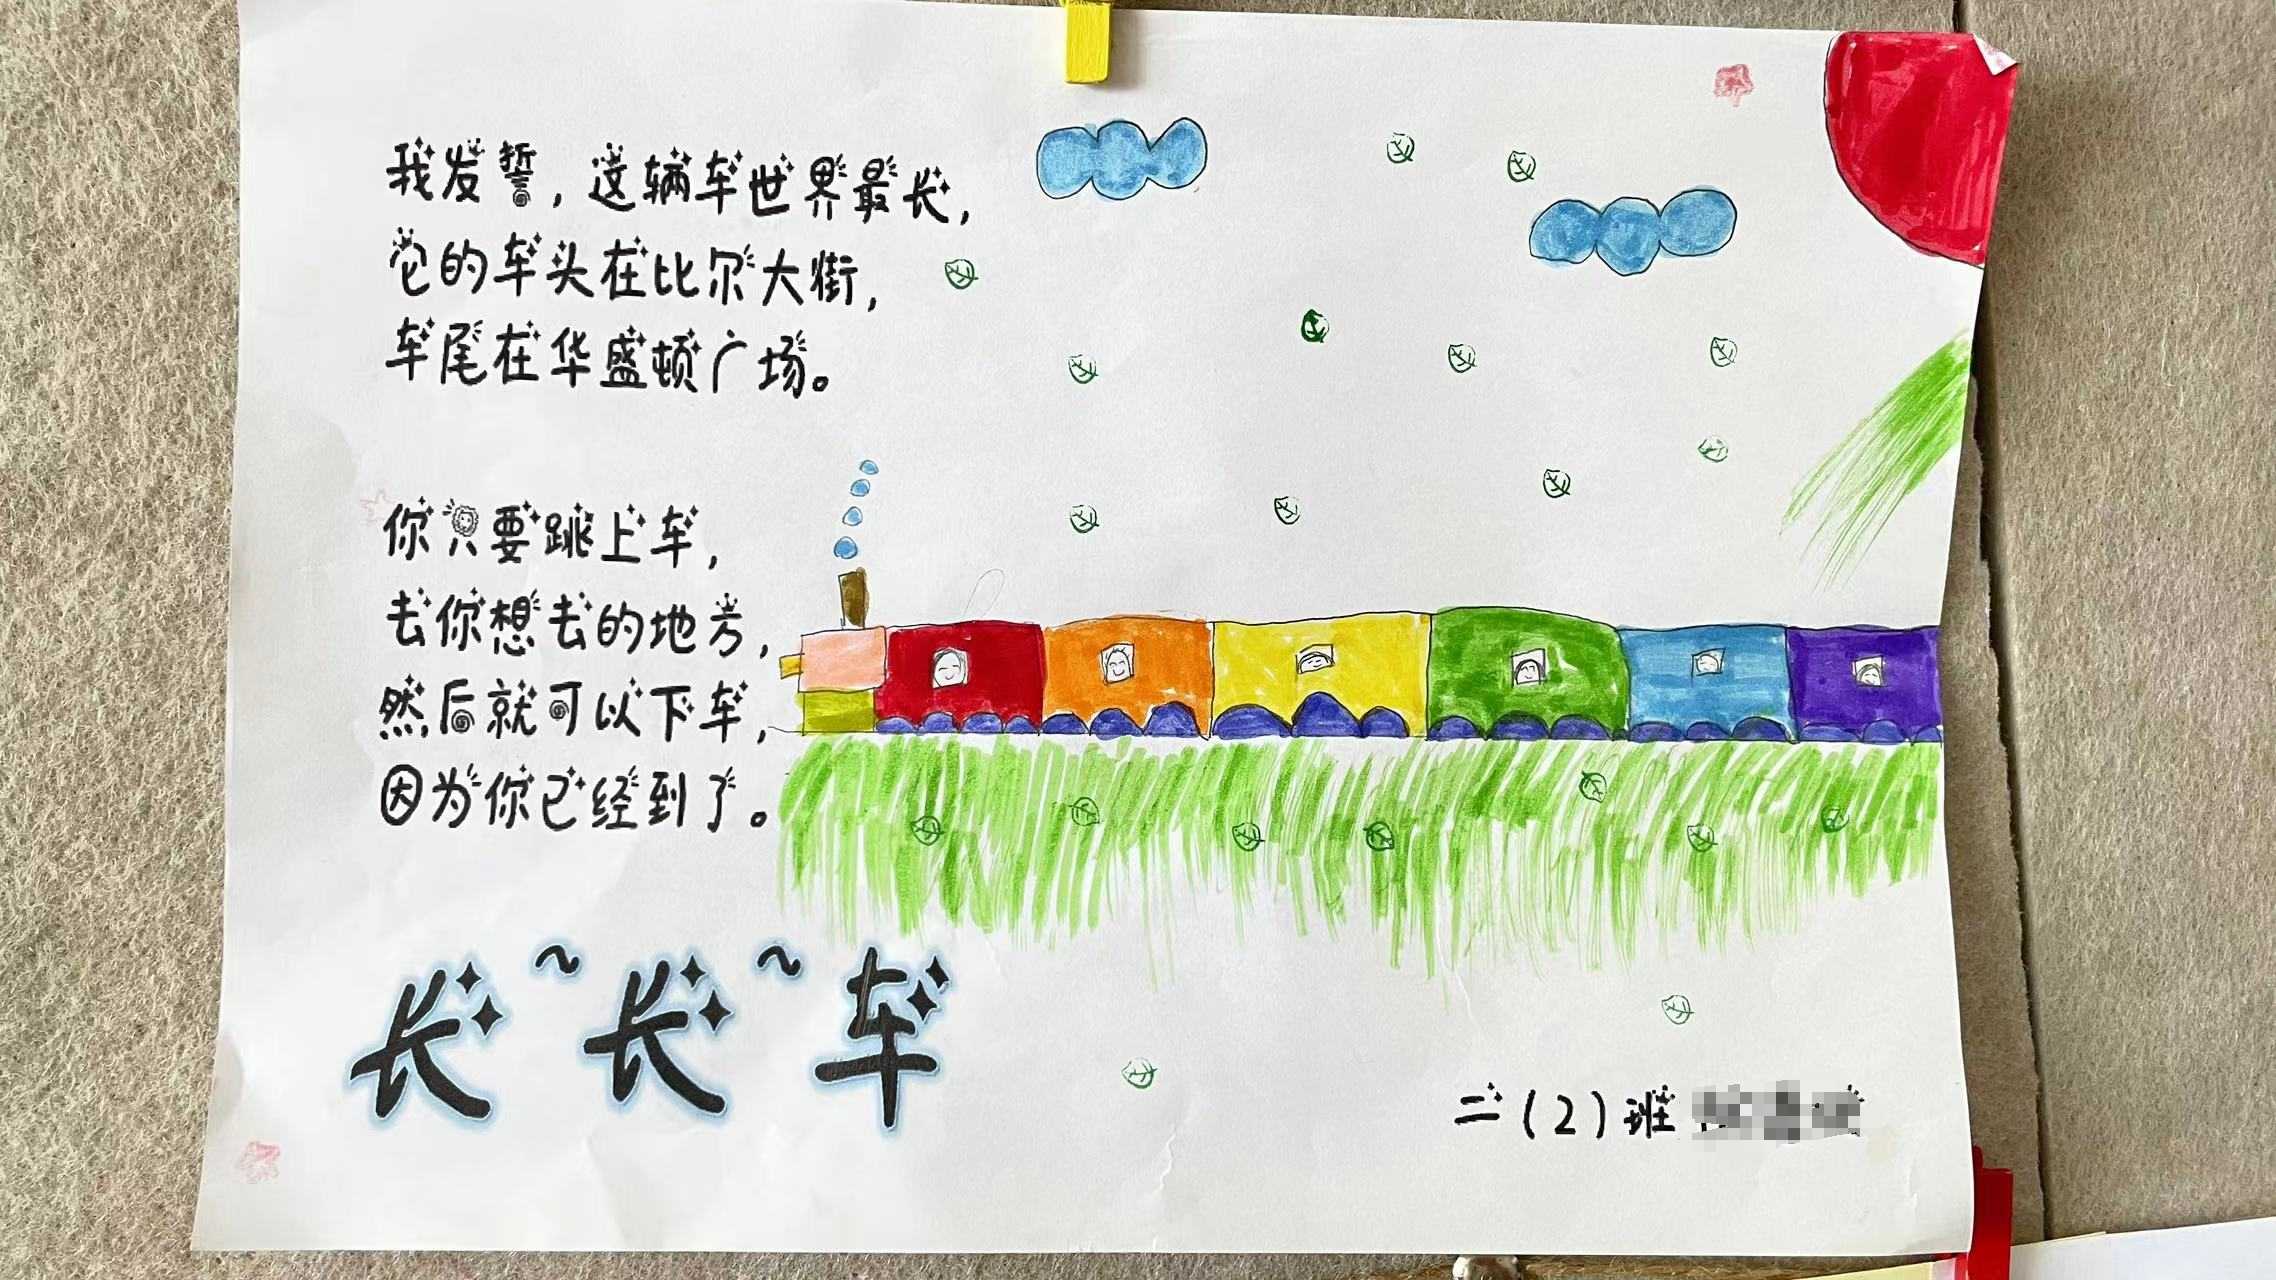 我发誓，这辆车世界最长，
它的车头在比尔大街，
车尾在华盛顿广场。
你只要跳上车，
去你想去的地方，
然后就可以下车，
因为你已经到了。
长~长~车
二(2)班